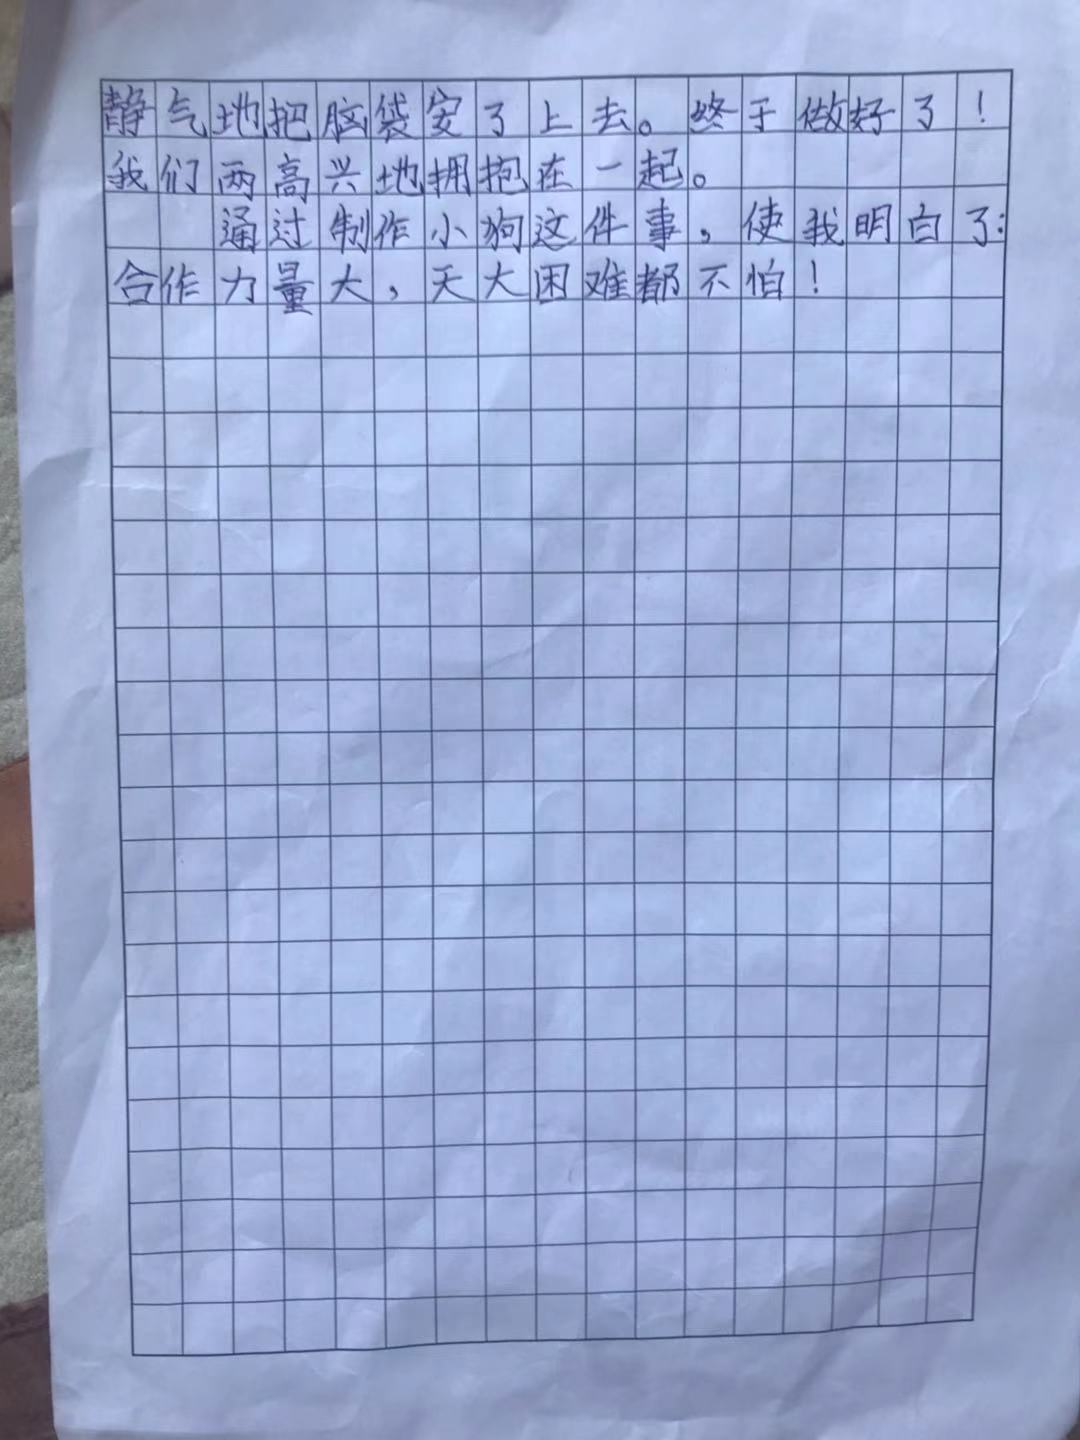 静气地把脑袋安了上去。终于做好了！
我们两高兴地拥抱在一起。
通过制作小狗这件事，使我明白了：
合作力量大，天大困难都不怕！